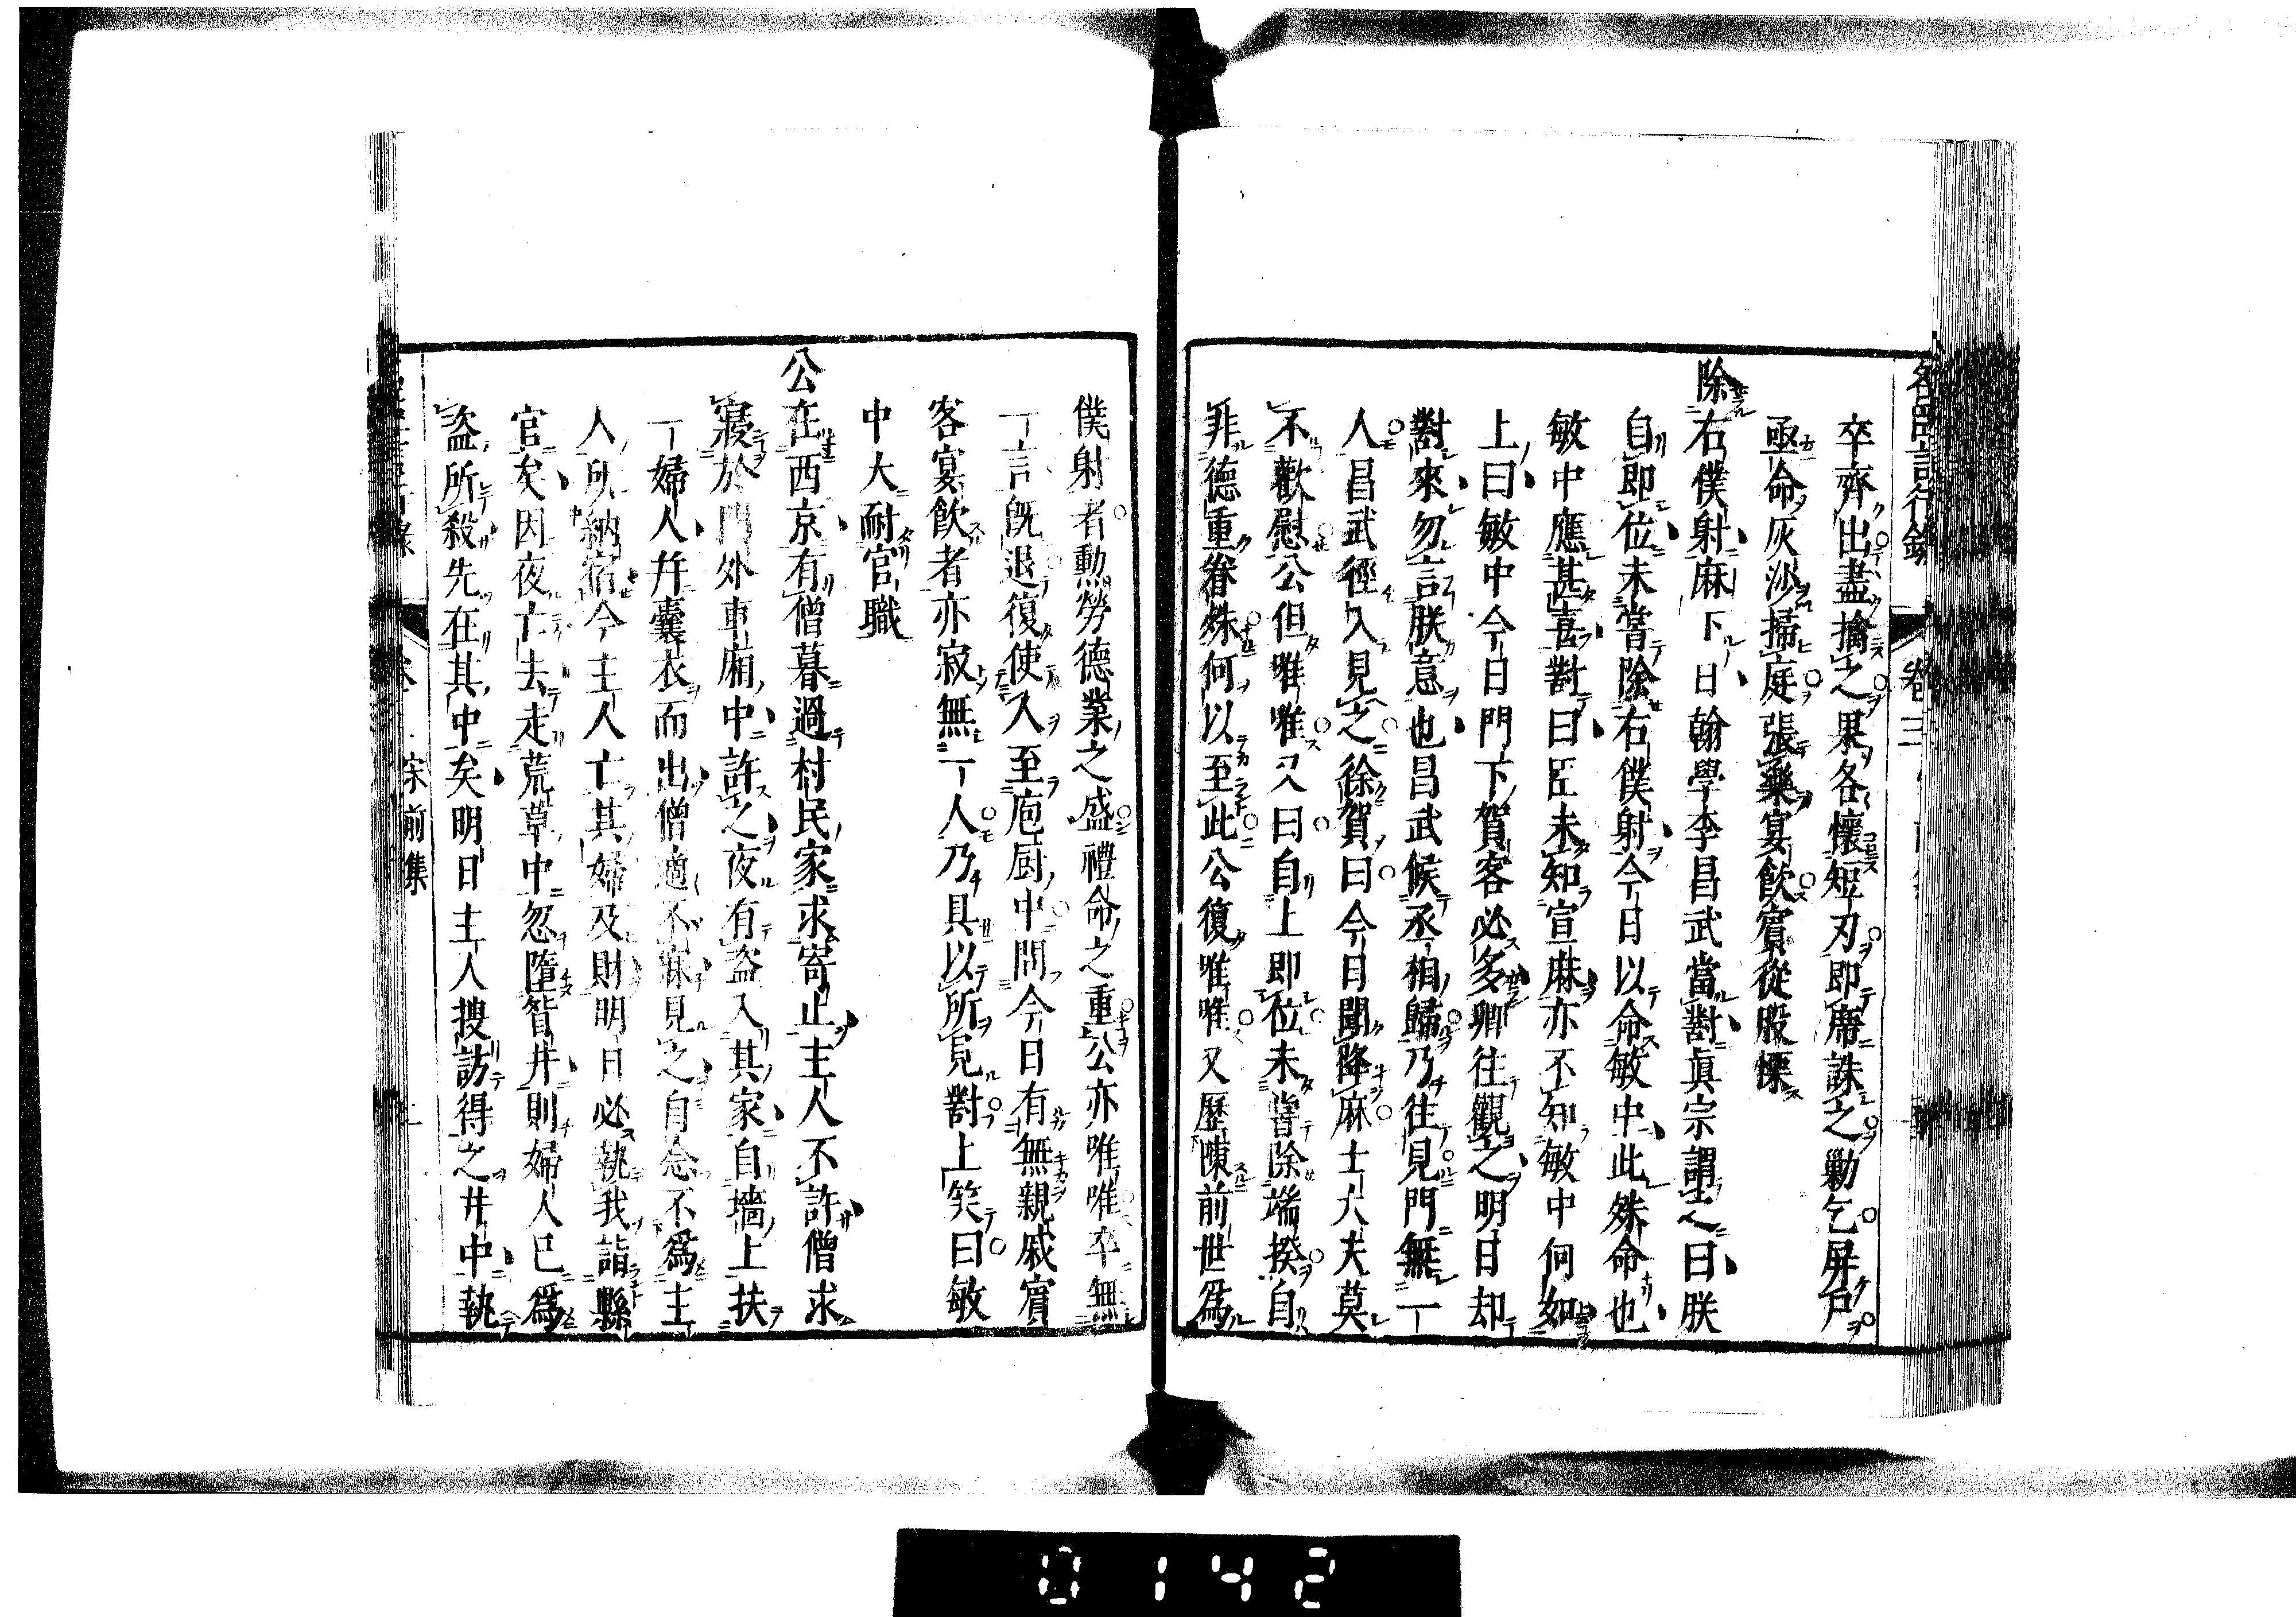 名臣言行錄 卷三
卒齊出盡擒之果各懷短刃即席誅之勦乞屏戸
亟命灰沙掃庭張樂宴飮賓從股慄
除右僕射麻下日翰學李昌武當對眞宗謂之曰朕
自即位未嘗除右僕射今日以命敏中此殊命也
敏中應甚喜對曰臣未知宣麻亦不知敏中何如
上曰敏中今日門下賀客必多卿往觀之明日却
對來勿言朕意也昌武候丞相歸乃往見門無一
人昌武徑入見之徐賀曰今日聞降麻士大夫莫
不歡慰公但唯唯又曰自上即位未嘗除端揆自
非德重眷殊何以至此公復唯唯又歷陳前世爲
僕射者勲勞德業之盛禮命之重公亦唯唯卒無
一言旣退復使人至庖厨中問今日有無親戚賓
客宴飮者亦寂無一人乃具以所見對上笑曰敏
中大耐官職
公在西京有僧暮過村民家求寄止主人不許僧求
寢於門外車廂中許之夜有盜入其家自墻上扶
一婦人幷囊衣而出僧適不寐見之自念不爲主
人所納宿今主人亡其婦及財明日必執我詣縣
官矣因夜亡去走荒草中忽墮眢井則婦人已爲
盜所殺先在其中矣明日主人搜訪得之井中執
宋前集
0142